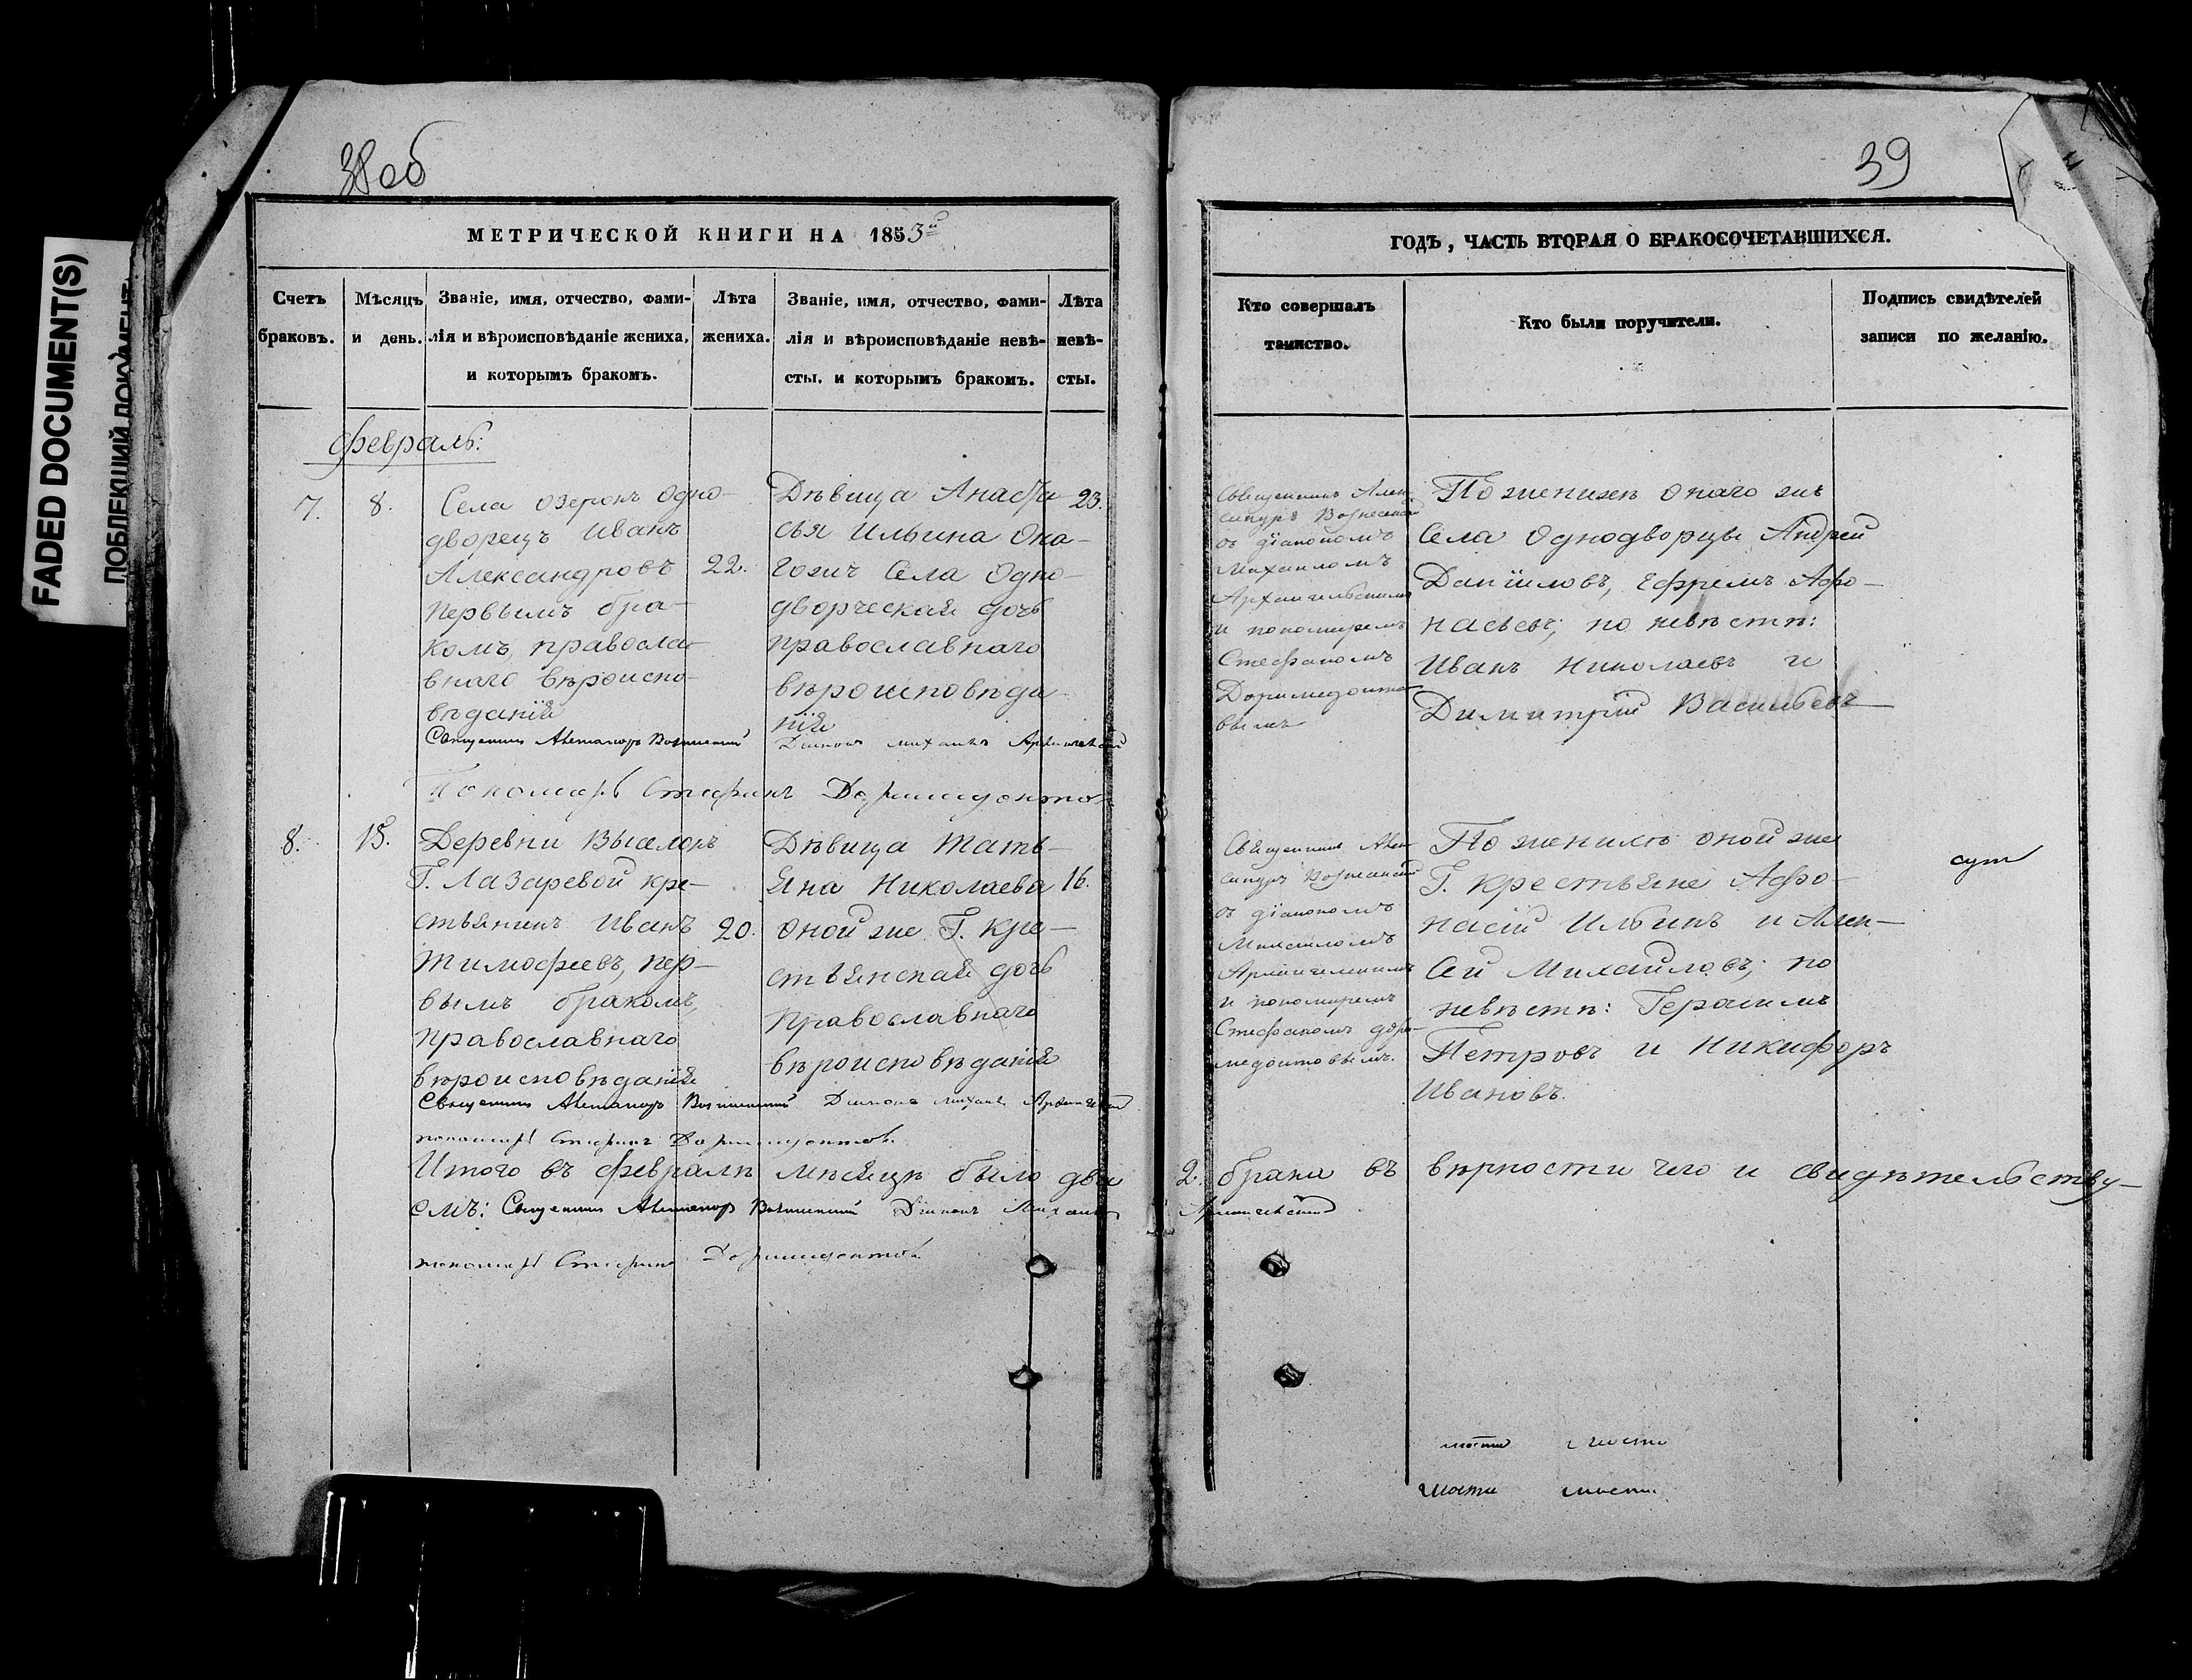 FADED DOCUMENT(S)
ПОБЛЕКШИЙ ДОКУМЕНТ
38 об
МЕТРИЧЕСКОЙ КНИГИ НА 1853й
Счетъ браковъ.
Мѣсяцъ и день.
Званіе, имя, отчество, фами-
лія и вѣроисповѣданіе жениха,
и которымъ бракомъ.
Лѣта жениха.
Званіе, имя, отчество, фами-
лія и вѣроисповѣданіе невѣ-
сты, и которымъ бракомъ.
Лѣта невѣ-
сты.
Февраль:
7.
8.
Села Озерокъ Одно-
дворецъ Иванъ
Александровъ
первымъ бра-
комъ, правосла-
внаго вѣроиспо-
вѣданія
22.
Дѣвица Анаста-
сья Ильина Она-
гожъ Села Одно-
дворческая дочь
православнаго
вѣроисповѣда-
нія
23.
Священникъ Александръ Вознесенскій Діаконъ Михаилъ Архангельскій
Пономарь Стефанъ Доримедонтовъ
8.
15.
Деревни Выселокъ
Г. Лазаревой кре-
стьянинъ Иванъ
Тимофеевъ, пер-
вымъ бракомъ,
православнаго
вѣроисповѣданія
20.
Дѣвица Тать-
яна Николаева
оной же Г. кре-
стьянская дочь
православнаго
вѣроисповѣданія
16.
Священникъ Александръ Вознесенскій Діаконъ Михаилъ Архангельскій
пономарь Стефанъ Доримедонтовъ.
Итого въ февралѣ мѣсяцѣ было два
емъ: Священникъ Александръ Вознесенскій Діаконъ Михаилъ
пономарь Стефанъ Доримедонтовъ.
39
ГОДЪ, ЧАСТЬ ВТОРАЯ О БРАКОСОЧЕТАВШИХСЯ.
Кто совершалъ
таинство.
Кто были поручители.
Подпись свидѣтелей
записи по желанію.
Священникъ Алек-
сандръ Вознесенскій
съ діакономъ
Михаиломъ
Архангельскимъ
и пономаремъ
Стефаномъ
Доримедонто-
вымъ
По женихѣ онаго же
Села Однодворцы Андрей
Даниловъ, Ефремъ Афо-
насьевъ; по невѣстѣ:
Иванъ Николаевъ и
Димитрій Васильевъ
Священникъ Алек-
сандръ Вознесенскій
съ діакономъ
Михаиломъ
Архангельскимъ
и пономаремъ
Стефаномъ Дори-
медонтовымъ.
По женихѣ оной же
Г. крестьяне Афо-
насій Ильинъ и Алек-
сей Михайловъ; по
невѣстѣ: Герасимъ
Петровъ и Никифоръ
Ивановъ.
2. брака въ вѣрности чего и свидѣтельству-
Архангельскій